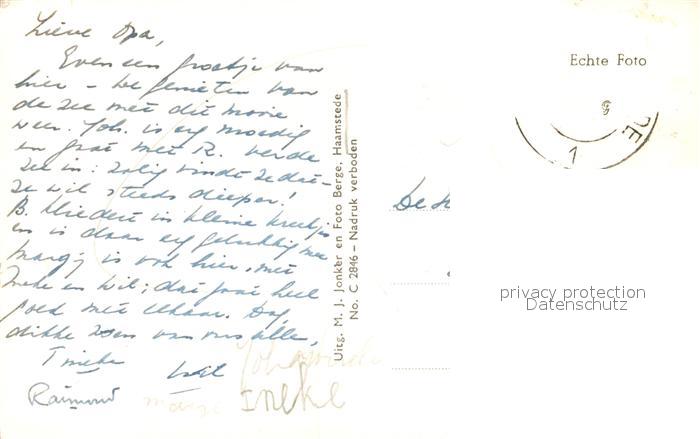 Lieve Opa,
Even een groetje van
hier – we genieten van
de zee met dit mooie
weer. Joh. is erg moedig
en gaat met R. verde
zee in: zalig vindt ze dat –
ze wil steeds dieper!
B. kliedert in kleine kreekjes
en is daar erg gelukkig mee
Margj is ook hier, met
Ineke en Wil; dat gaat heel
goed met elkaar. Dag,
dikke zoen van ons alle,
Tineke Wil Johanneke
Raimond marge Ineke
Uitg. M. J. Jonker en Foto Berge, Haamstede
No. C 2846 – Nadruk verboden
Echte Foto
1
De
privacy protection
Datenschutz